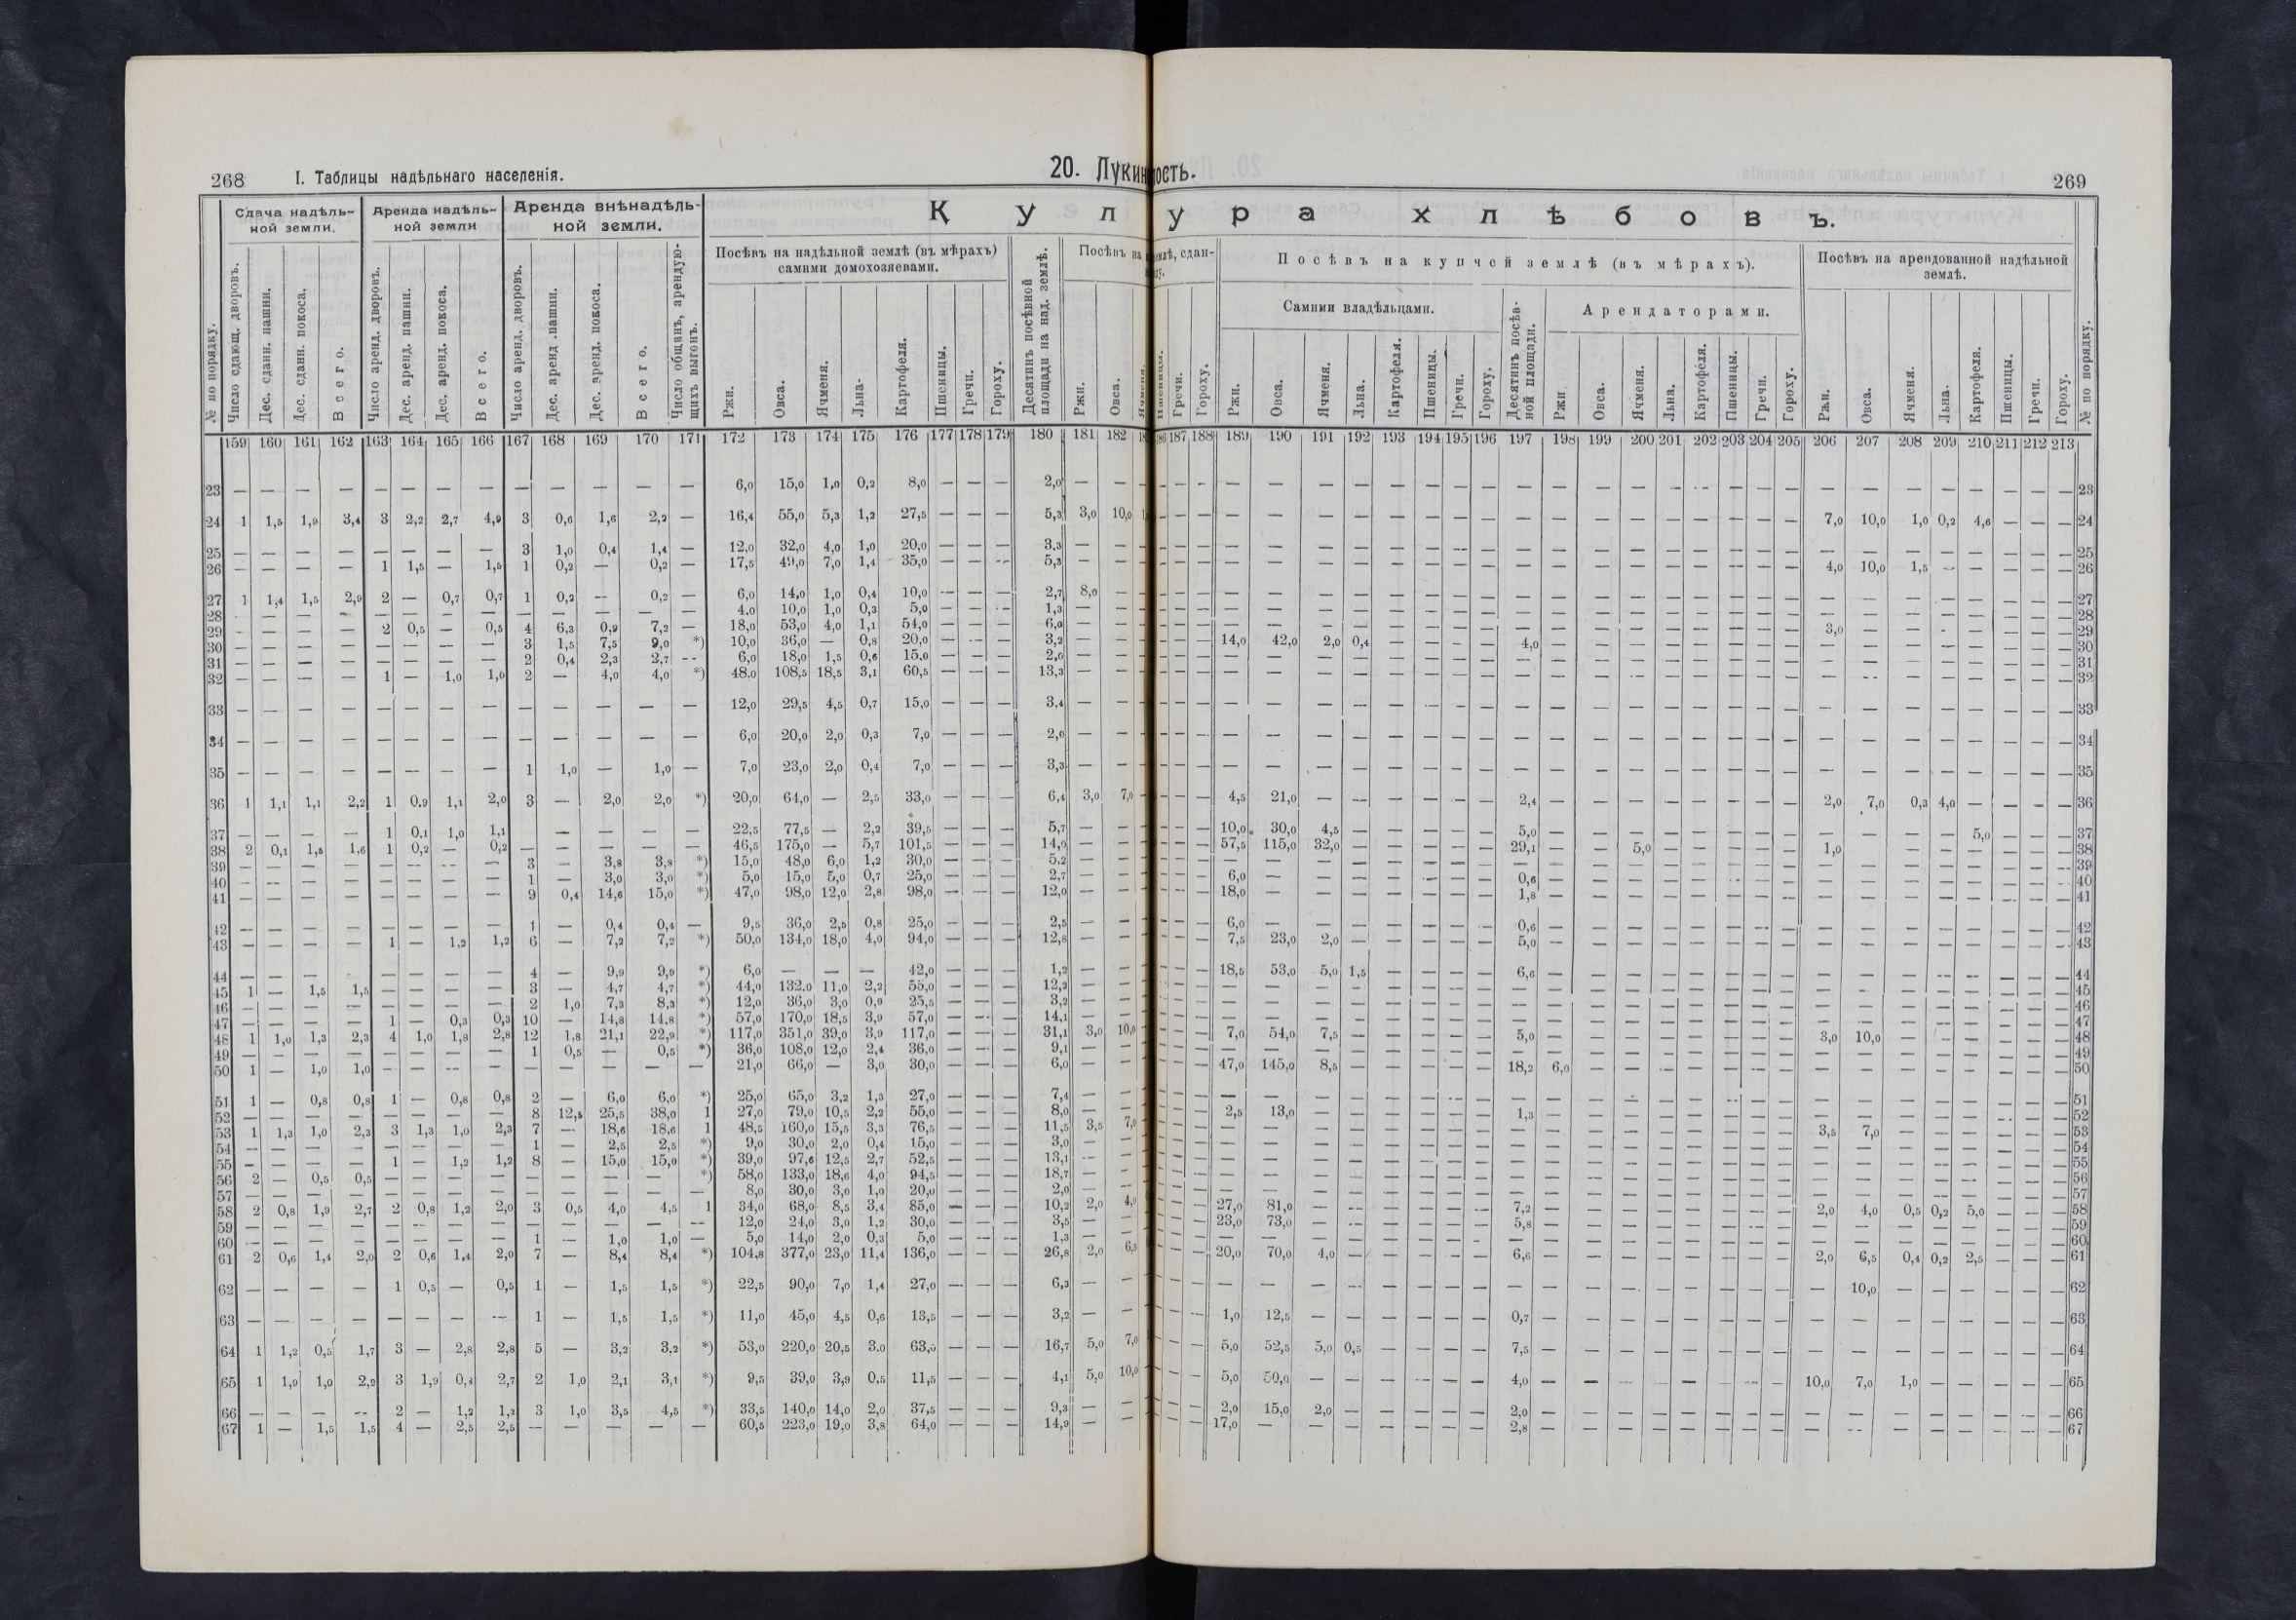 268 I. Таблицы надѣльнаго населенія.
20. Лукин ость.
269
Сдача надѣль-ной земли. Аренда надѣль-ной земли Аренда внѣнадѣль-ной земли.
К у л у р а х л ѣ б о в ъ.
Посѣвъ на надѣльной землѣ (въ мѣрахъ) самими домохозяевами.
Посѣвъ на землѣ, сдан-
Посѣвъ на купчей землѣ (въ мѣрахъ).
Посѣвъ на арендованной надѣльной землѣ.
Самими владѣльцами. Арендаторами.
№ по порядку. Число сдающ. дворовъ. Дес. сданн. пашни. Дес. сданн. покоса. Всего. Число аренд. дворовъ. Дес. аренд. пашни. Дес. аренд. покоса. Всего. Число аренд. дворовъ. Дес. аренд. пашни. Дес. аренд. покоса. Всего. Число общинъ, арендую-щихъ выгонъ. Ржи. Овса. Ячменя. Льна- Картофеля. Пшеницы. Гречи. Гороху. Десятинъ посѣвной площади на над. землѣ. Ржи. Овса.
Пшеницы. Гречи. Гороху. Ржи. Овса. Ячменя. Льна. Картофеля. Пшеницы. Гречи. Гороху. Десятинъ посѣв-ной площади. Ржи Овса. Ячменя. Льна. Картофеля. Пшеницы. Гречи. Гороху. Ржи. Овса. Ячменя. Льна. Картофеля. Пшеницы. Гречи. Гороху. № по порядку.
159 160 161 162 163 164 165 166 167 168 169 170 171 172 173 174 175 176 177 178 179 180 181 182 187 188 189 190 191 192 193 194 195 196 197 198 199 200 201 202 203 204 205 206 207 208 209 210 211 212 213
23 — — — — — — — — — — — — — 6,0 15,0 1,0 0,2 8,0 — — — 2,0 — — 23
24 1 1,5 1,9 3,4 3 2,2 2,7 4,9 3 0,6 1,6 2,2 — 16,4 55,0 5,3 1,2 27,5 — — — 5,3 3,0 10,0 7,0 10,0 1,0 0,2 4,6 — — — 24
25 — — — — — — — — 3 1,0 0,4 1,4 — 12,0 32,0 4,0 1,0 20,0 — — — 3,3 — — 25
26 — — — — 1 1,5 — 1,5 1 0,2 — 0,2 — 17,5 49,0 7,0 1,4 35,0 — — — 5,3 — — 4,0 10,0 1,5 — — — — — 26
27 1 1,4 1,5 2,9 2 — 0,7 0,7 1 0,2 — 0,2 — 6,0 14,0 1,0 0,4 10,0 — — — 2,7 8,0 — 27
28 — — — — — — — — — — — — — 4,0 10,0 1,0 0,3 5,0 — — — 1,3 — — 28
29 — — — — 2 0,5 — 0,5 4 6,3 0,9 7,2 — 18,0 53,0 4,0 1,1 54,0 — — — 6,0 — — 3,0 — — — — — — — 29
30 — — — — — — — — 3 1,5 7,5 9,0 *) 10,0 36,0 — 0,8 20,0 — — — 3,2 — — 14,0 42,0 2,0 0,4 — — — — 4,0 — 30
31 — — — — — — — — 2 0,4 2,3 2,7 — 6,0 18,0 1,5 0,6 15,0 — — — 2,0 — — 31
32 — — — — 1 — 1,0 1,0 2 — 4,0 4,0 *) 48,0 108,5 18,5 3,1 60,5 — — — 13,3 — — 32
33 — — — — — — — — — — — — — 12,0 29,5 4,5 0,7 15,0 — — — 3,4 — — 33
34 — — — — — — — — — — — — — 6,0 20,0 2,0 0,3 7,0 — — — 2,0 — — 34
35 — — — — — — — — 1 1,0 — 1,0 — 7,0 23,0 2,0 0,4 7,0 — — — 3,3 — — 35
36 1 1,1 1,1 2,2 1 0,9 1,1 2,0 3 — 2,0 2,0 *) 20,0 64,0 — 2,5 33,0 — — — 6,4 3,0 7,0 4,5 21,0 — — — — — — 2,4 — 2,0 7,0 0,3 4,0 — — — — 36
37 — — — — 1 0,1 1,0 1,1 — — — — 22,5 77,5 — 2,2 39,5 — — — 5,7 — — 10,0 30,0 4,5 — — — — — 5,0 — 5,0 — — — 37
38 2 0,1 1,5 1,6 1 0,2 — 0,2 — — — — — 46,5 175,0 — 5,7 101,5 — — — 14,0 — — 57,5 115,0 32,0 — — — — — 29,1 — — 5,0 — — — — — 1,0 — — — — — — — 38
39 — — — — — — — — 3 — 3,8 3,8 *) 15,0 48,0 6,0 1,2 30,0 — — — 5,2 — — 39
40 — — — — — — — — 1 — 3,0 3,0 *) 5,0 15,0 5,0 0,7 25,0 — — — 2,7 — — 6,0 — — — — — — — 0,6 — 40
41 — — — — — — — — 9 0,4 14,6 15,0 *) 47,0 98,0 12,0 2,8 98,0 — — — 12,0 — — 18,0 — — — — — — — 1,8 — 41
42 — — — — — — — — 1 — 0,4 0,4 — 9,5 36,0 2,5 0,8 25,0 — — — 2,5 — — 6,0 — — — — — — — 0,6 — 42
43 — — — — 1 — 1,2 1,2 6 — 7,2 7,2 *) 50,0 134,0 18,0 4,0 94,0 — — — 12,8 — — 7,5 23,0 2,0 — — — — — 5,0 — 43
44 — — — — — — — — 4 — 9,9 9,9 *) 6,0 — — — 42,0 — — — 1,2 — — 18,5 53,0 5,0 1,5 — — — — 6,6 — 44
45 1 — 1,5 1,5 — — — — 3 — 4,7 4,7 *) 44,0 132,0 11,0 2,2 55,0 — — — 12,2 — — 45
46 — — — — — — — — 2 1,0 7,3 8,3 *) 12,0 36,0 3,0 0,9 25,5 — — — 3,2 — — 46
47 — — — — 1 — 0,3 0,3 10 — 14,8 14,8 *) 57,0 170,0 18,5 3,9 57,0 — — — 14,1 — — 47
48 1 1,0 1,3 2,3 4 1,0 1,8 2,8 12 1,8 21,1 22,9 *) 117,0 351,0 39,0 3,9 117,0 — — — 31,1 3,0 10,0 7,0 54,0 7,5 — — — — — 5,0 — 3,0 10,0 — — — — — — 48
49 — — — — — — — — 1 0,5 — 0,5 *) 36,0 108,0 12,0 2,4 36,0 — — — 9,1 — — 49
50 1 — 1,0 1,0 — — — — — — — — — 21,0 66,0 — 3,0 30,0 — — — 6,0 — — 47,0 145,0 8,5 — — — — — 18,2 6,0 — 50
51 1 — 0,8 0,8 1 — 0,8 0,8 2 — 6,0 6,0 *) 25,0 65,0 3,2 1,3 27,0 — — — 7,4 — — 51
52 — — — — — — — — 8 12,5 25,5 38,0 1 27,0 79,0 10,5 2,2 55,0 — — — 8,0 — — 2,5 13,0 — — — — — — 1,3 — 52
53 1 1,3 1,0 2,3 3 1,3 1,0 2,3 7 — 18,6 18,6 1 48,5 160,0 15,5 3,3 76,5 — — — 11,5 3,5 7,0 3,5 7,0 — — — — — — 53
54 — — — — — — — — 1 — 2,5 2,5 *) 9,0 30,0 2,0 0,4 15,0 — — — 3,0 — — 54
55 — — — — 1 — 1,2 1,2 8 — 15,0 15,0 *) 39,0 97,6 12,5 2,7 52,5 — — — 13,1 — — 55
56 2 — 0,5 0,5 — — — — — — — — *) 58,0 133,0 18,6 4,0 94,5 — — — 18,7 — — 56
57 — — — — — — — — — — — — — 8,0 30,0 3,0 1,0 20,0 — — — 2,0 — — 57
58 2 0,8 1,9 2,7 2 0,8 1,2 2,0 3 0,5 4,0 4,5 1 34,0 68,0 8,5 3,4 85,0 — — — 10,2 2,0 4,0 27,0 81,0 — — — — — — 7,2 — 2,0 4,0 0,5 0,2 5,0 — — — 58
59 — — — — — — — — — — — — — 12,0 24,0 3,0 1,2 30,0 — — — 3,5 — — 23,0 73,0 — — — — — — 5,8 — 59
60 — — — — — — — — 1 — 1,0 1,0 — 5,0 14,0 2,0 0,3 5,0 — — — 1,3 — — 60
61 2 0,6 1,4 2,0 2 0,6 1,4 2,0 7 — 8,4 8,4 *) 104,8 377,0 23,0 11,4 136,0 — — — 26,8 2,0 6,5 20,0 70,0 4,0 — — — — — 6,6 — 2,0 6,5 0,4 0,2 2,5 — — — 61
62 — — — — 1 0,5 — 0,5 1 — 1,5 1,5 *) 22,5 90,0 7,0 1,4 27,0 — — — 6,3 — — — 10,0 62
63 — — — — — — — — 1 — 1,5 1,5 *) 11,0 45,0 4,5 0,6 13,5 — — — 3,2 — — 1,0 12,5 — — — — — — 0,7 — 63
64 1 1,2 0,5 1,7 3 — 2,8 2,8 5 — 3,2 3,2 *) 53,0 220,0 20,5 3,0 63,0 — — — 16,7 5,0 7,0 5,0 52,5 5,0 0,5 — — — — 7,5 — 64
65 1 1,9 1,0 2,9 3 1,9 0,8 2,7 2 1,0 2,1 3,1 *) 9,5 39,0 3,9 0,5 11,5 — — — 4,1 5,0 10,0 5,0 50,0 — — — — — — 4,0 — 10,0 7,0 1,0 — — — — — 65
66 — — — — 2 — 1,2 1,2 3 1,0 3,5 4,5 *) 33,5 140,0 14,0 2,0 37,5 — — — 9,3 — — 2,0 15,0 2,0 — — — — — 2,0 — 66
67 1 — 1,5 1,5 4 — 2,5 2,5 — — — — 60,5 223,0 19,0 3,8 64,0 — — — 14,9 — — 17,0 — — — — — — — 2,8 — 67